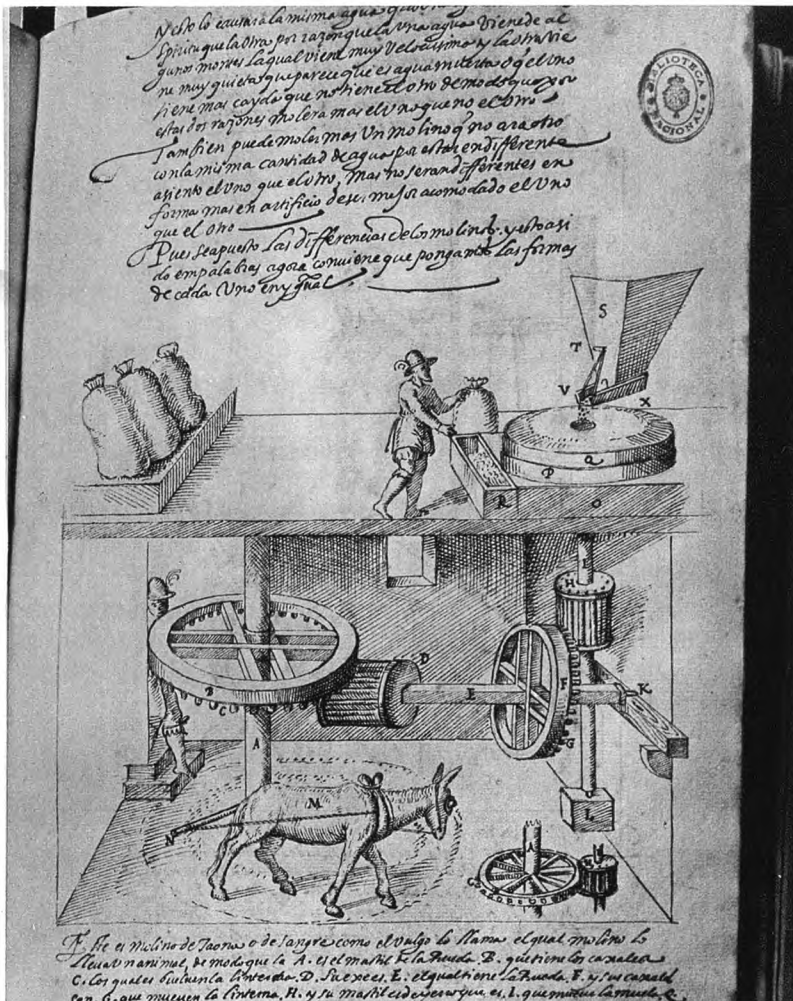 y esto lo causara la misma agua
spiritu que la otra por razon que la una agua viene de al
gunos montes la qual viene muy velocissima y la otra vie
ne muy quieta que parece que es agua muerta o q̃ el uno
tiene mas cayda que no tiene el otro de modo que por
estas dos razones molera mas el uno que no el otro
Tambien puede moler mas un molino q̃ no ara otro
con la misma cantidad de agua por estar en differente
asiento el uno que el otro, mas no seran differentes en
forma mas en artificio de ser mejor acomodado el uno
que el otro
Pues se a puesto las differencias de los molinos. y esto a si
do em palabras agora conviene que pongamos las formas
de cada uno en ygual.
BIBLIOTECA NACIONAL
S
T
V
X
Q
P
R
O
I
H
D
B
C
E
F
K
G
A
M
N
L
A
Este es molino de Taona o de sangre como el vulgo lo llama el qual molino lo
lleva un animal, de modo que la A. es el mastil de la Rueda B. que tiene los
C. los quales buelven la linterna. D. Su exe es. E. el qual tiene la Rueda. F. y sus
con G. que mueven la linterna, H. y su mastil es de yerro que es, I. que mueve la muela,